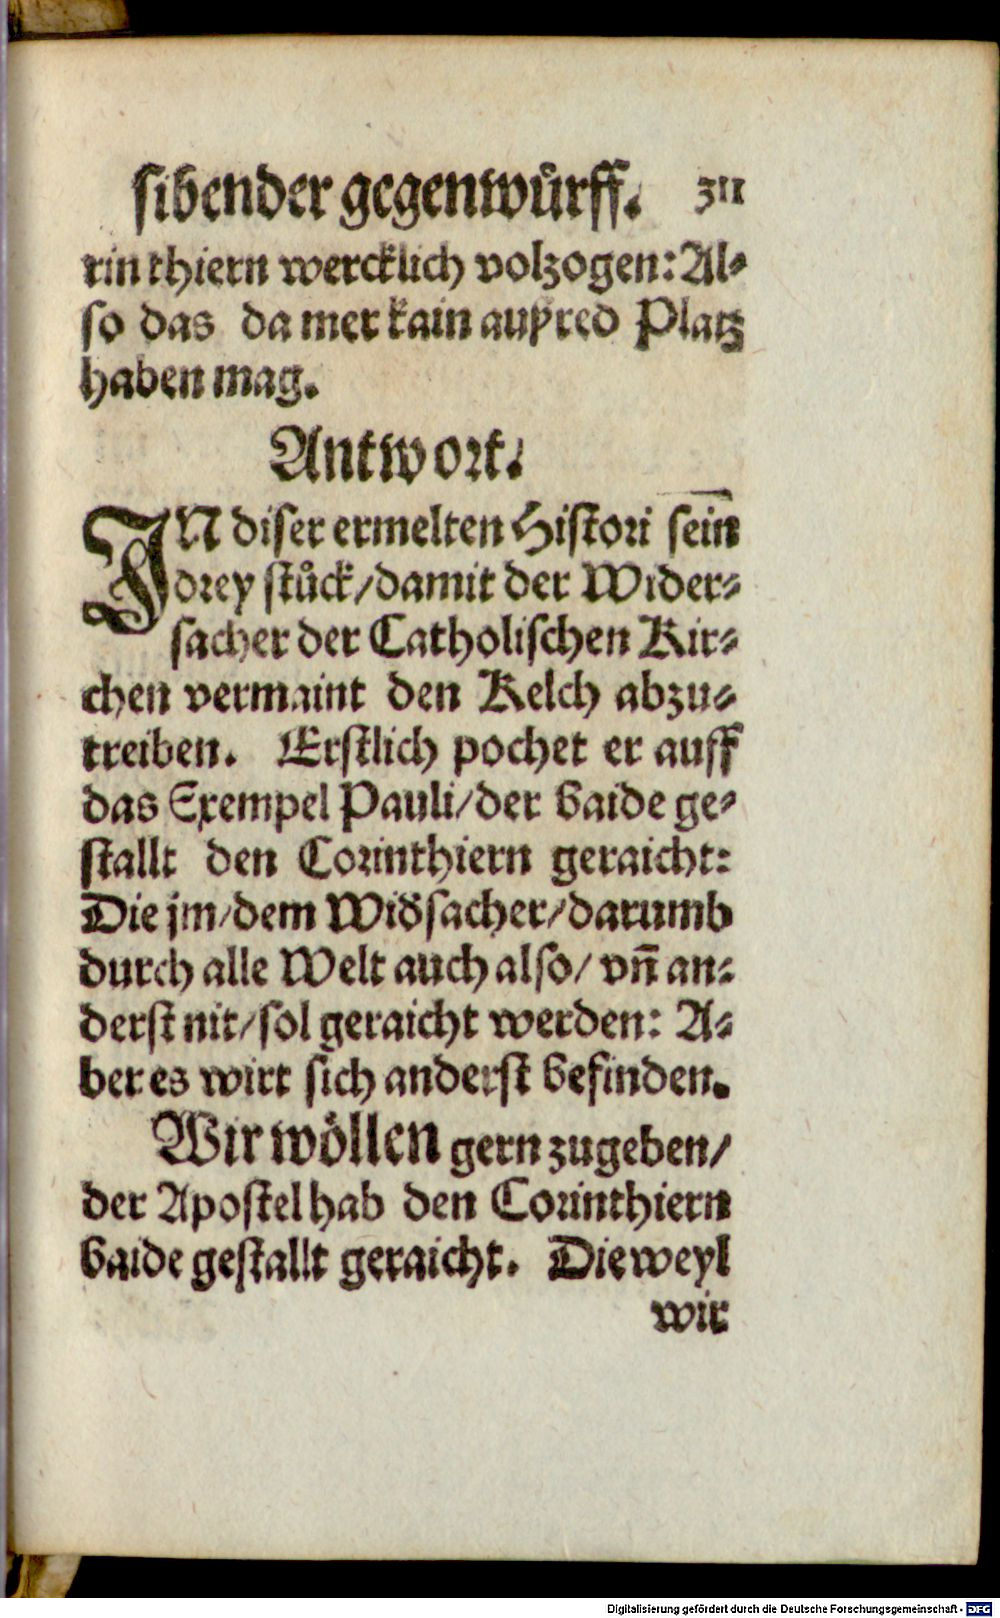 sibender gegenwürff. 311
rinthiern wercklich volzogen: Al⸗
so das da mer kain außred Platz
haben mag.
Antwort.
IN diser ermelten Histori sein
drey stück/damit der Wider⸗
sacher der Catholischen Kir⸗
chen vermaint den Kelch abzu⸗
treiben. Erstlich pochet er auff
das Exempel Pauli/der baide ge⸗
stallt den Corinthiern geraicht:
Die jm/dem Widsacher/darumb
durch alle Welt auch also/ vñ an⸗
derst nit/sol geraicht werden: A⸗
ber es wirt sich anderst befinden.
Wir wöllen gern zugeben/
der Apostel hab den Corinthiern
baide gestallt geraicht. Dieweyl
wir
Digitalisierung gefördert durch die Deutsche Forschungsgemeinschaft - DFG